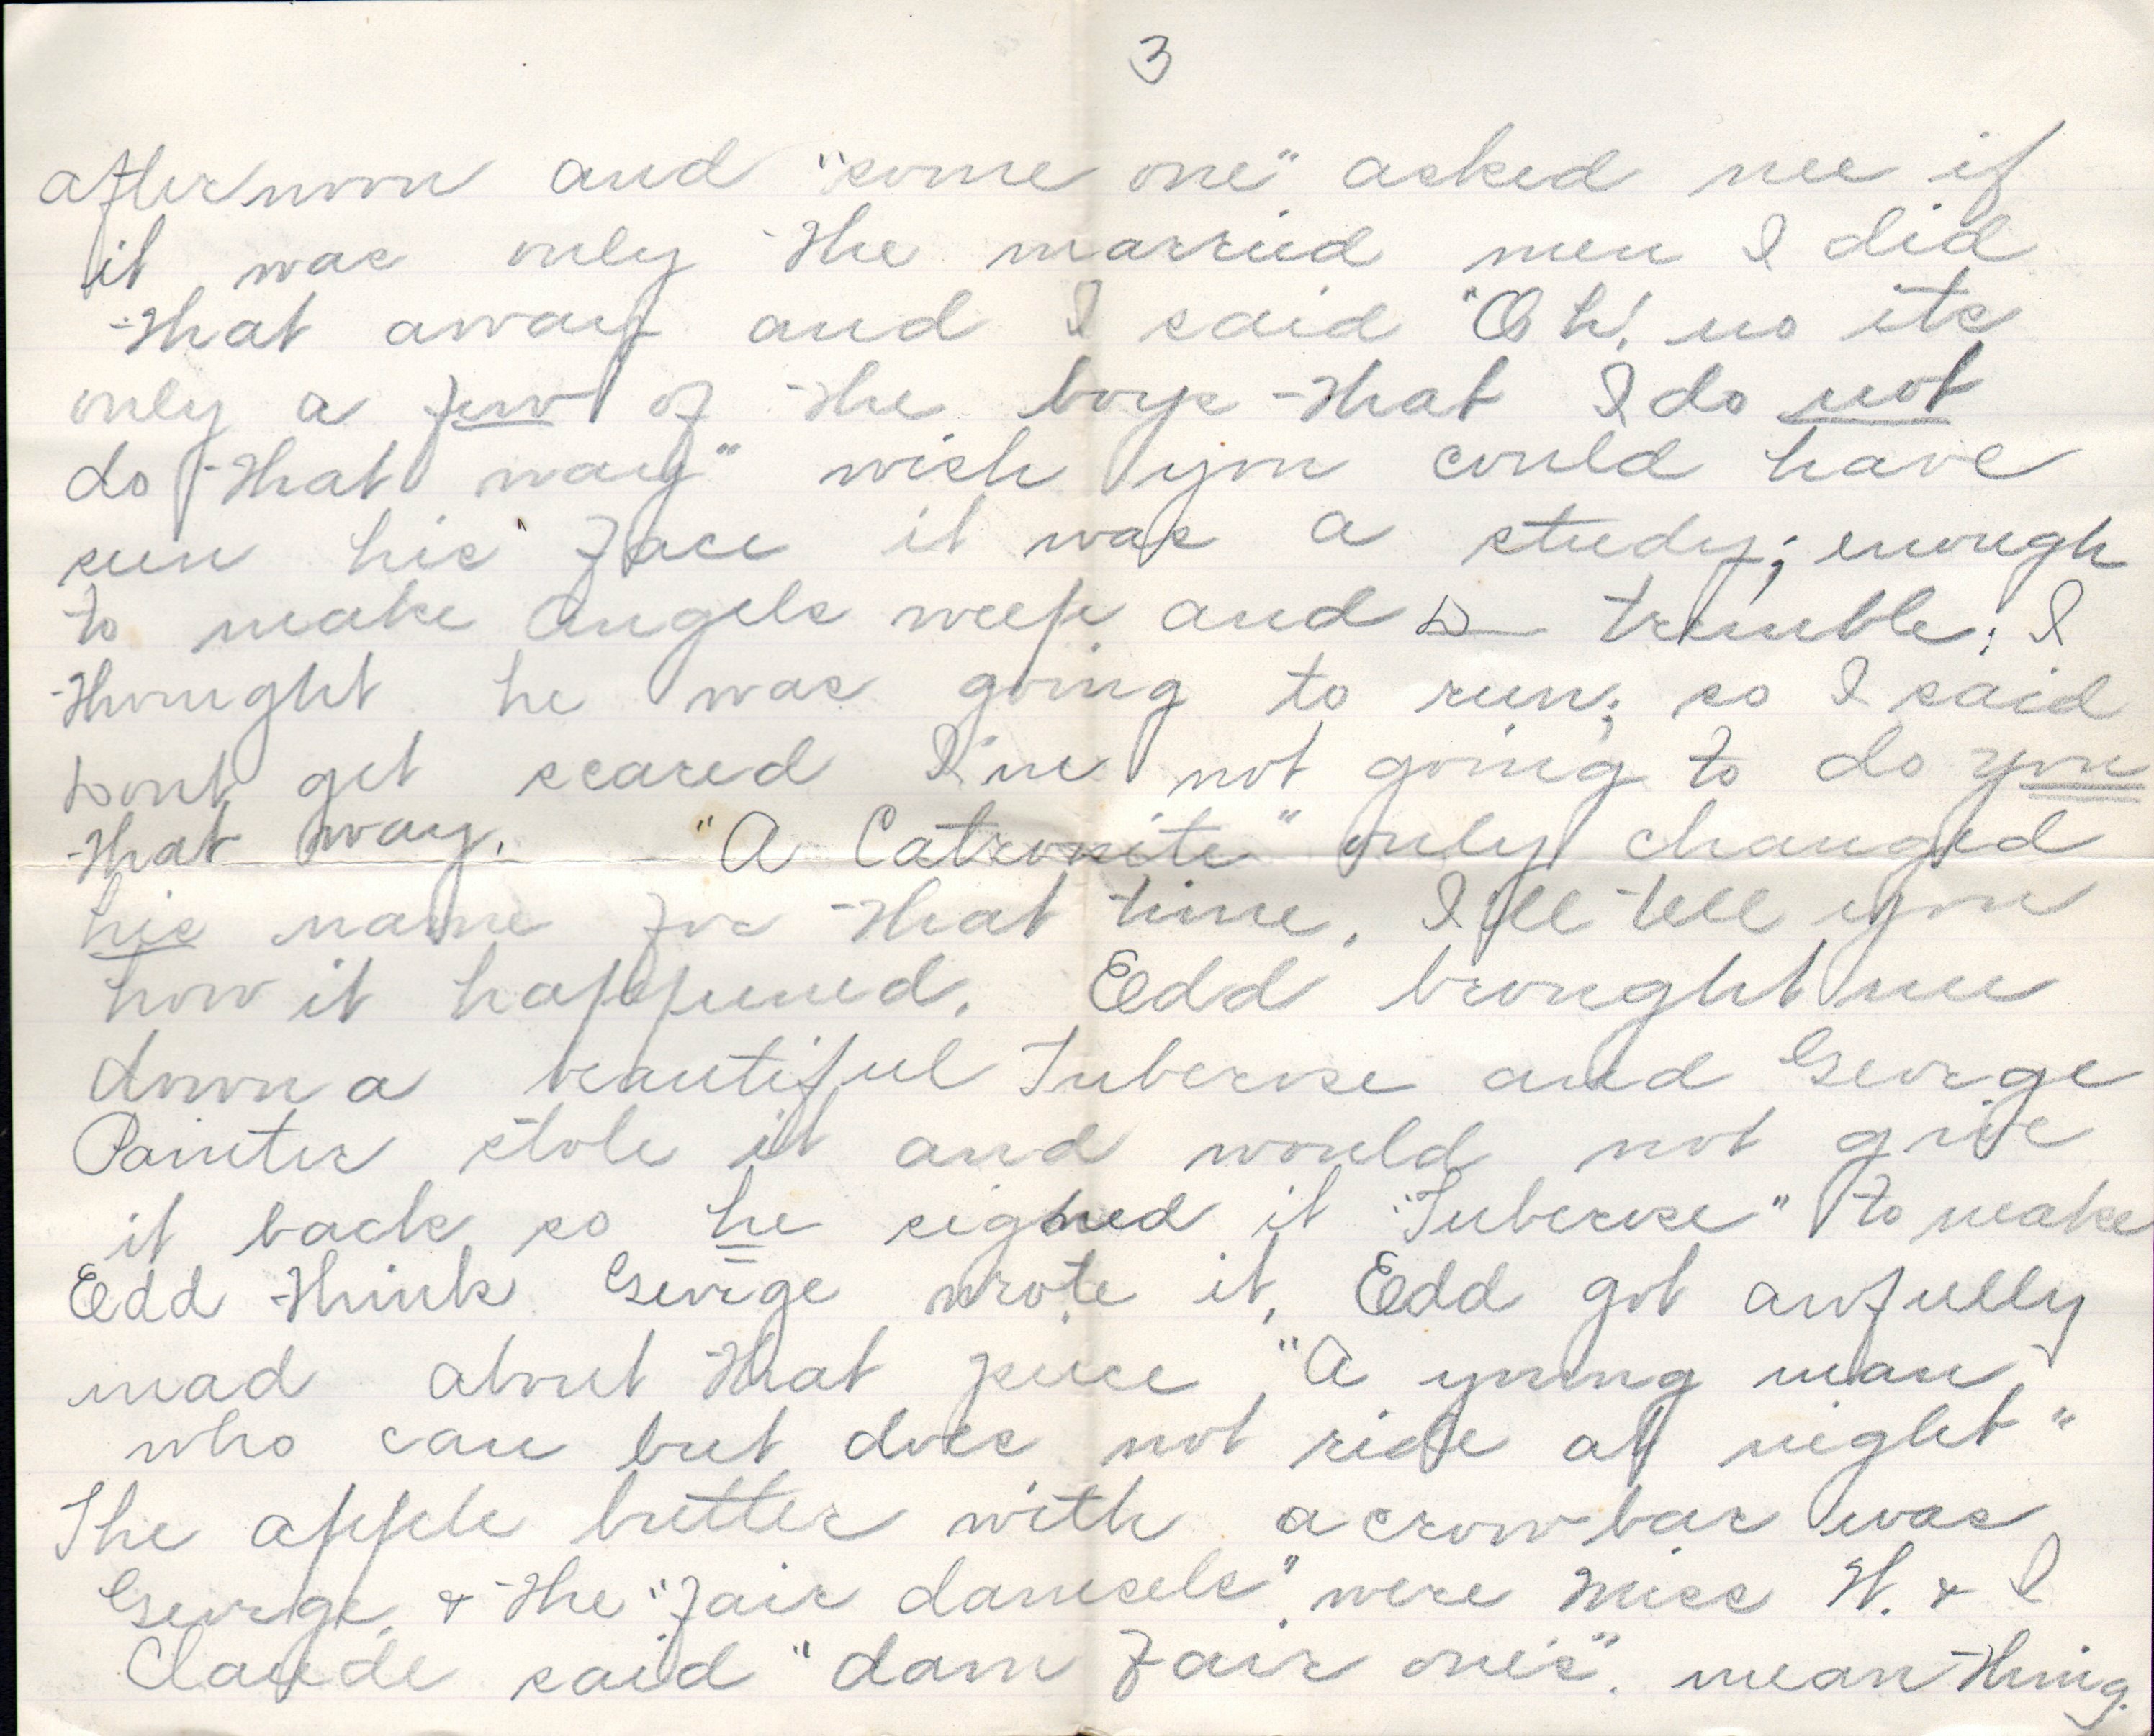 3
afternoon and "some one" asked me if
it was only the married men I did
that away and I said "Oh! no its
only a few of the boys that I do not
do that way" wish you could have
seen his face it was a study; enough
to make angels weep and D— tremble; I
thought he was going to run; so I said
Dont get scared I'm not going to do you
that way. "A Catronite" only changed
his name for that time. I'll tell you
how it happened. Edd brought me
down a beautiful Tuberose and George
Painter stole it and would not give
it back so he signed it "Tuberose" to make
Edd think George wrote it. Edd got awfully
mad about that piece "A young man
who can but does not ride at night"
The apple butter with a crow-bar was
George & the "fair damsels" were Miss W. & I
Claude said "dam fair one's". mean thing.